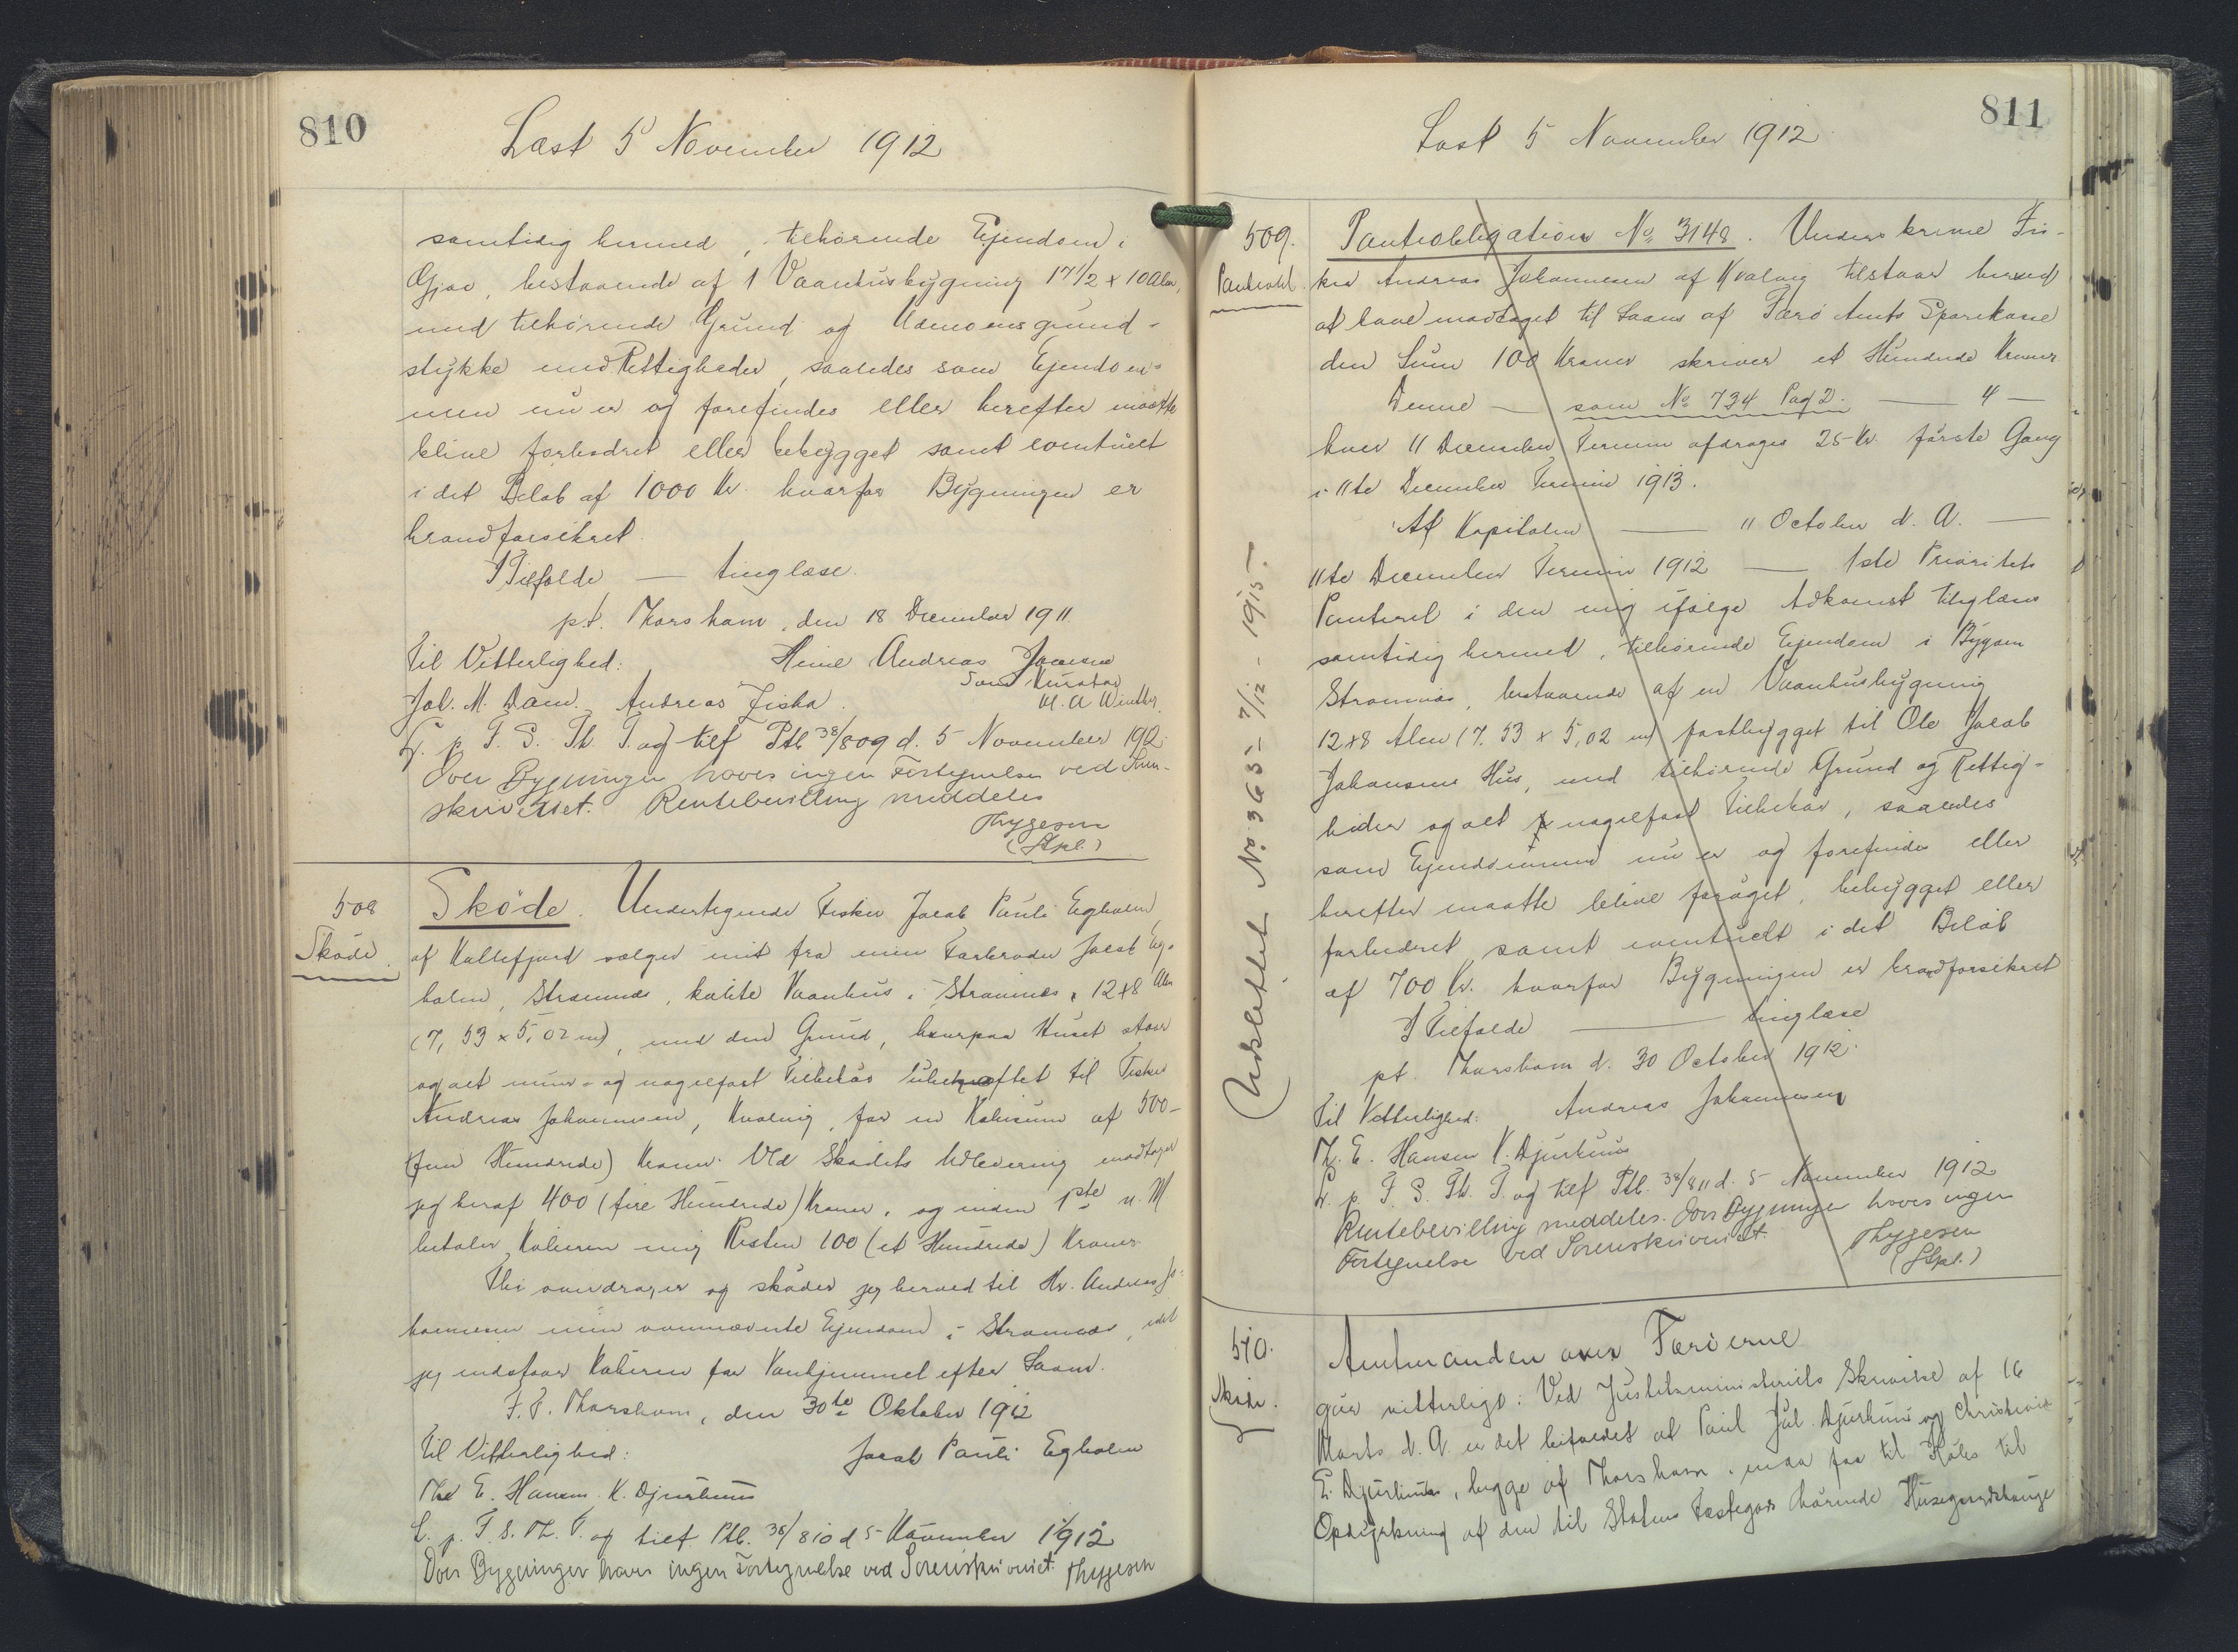 810
Læst 5 November 1912
samtidig hermed, tilhørende Ejendom i
Gjov, bestaaende af 1 Vaanhusbygning 17 1/2 x 10 Alen,
med tilhørende Grund og Udmoensgrund-
stykke med Rettigheder, saaledes som Ejendom-
men nu er og forefindes eller herefter maatte
blive forbedret eller bebygget samt eventuelt
i det Beløb af 1000 Kr. hvorfor Bygningen er
brandforsikret.
I Tilfælde — tinglæse.
p.t. Thorshavn, den 18 December 1911.
Til Vitterlighed: Heine Andreas Joensen
Som Kurator
Joh. M. Dam. Andreas Ziska. M. A. Winther.
L. p. F. S. Th. T. og tilf Ptb. 38/809 d. 5 November 1912.
Over Bygninger haves ingen Fortegnelse ved Soren-
skriveriet. Rentebevilling meddeles
Thygesen
(Kpl.)
508
Skøde.
Skøde. Undertegnede Fisker Jacob Pauli Egholm
af Kollefjord sælger mit fra min Farbroder Jacob Eg-
holm, Strømnæs, købte Vaanhus i Strømnæs, 12x8 Alen
(7,53 x 5,02 m), med den Grund, hvorpaa Huset staar
og alt mur- og nagelfast Tilbehør ubehæftet til Fisker
Andreas Johannesen, Kvalvig, for en Købesum af 500-
(fem Hundrede) Kroner. Ved Skødets Udlevering modtager
jeg heraf 400 (fire Hundrede) Kroner, og inden 1ste n. M
betaler Køberen mig Resten 100 (et Hundrede) Kroner.
Thi overdrager og skøder jeg herved til Hr. Andreas Jo-
hannesen min ovennævnte Ejendom i Strømnæs, idet
jeg indestaar Køberen for Vanhjemmel efter Loven.
P. T. Thorshavn, den 30te Oktober 1912
Til Vitterlighed: Jacob Pauli Egholm
Th. E. Hansen K. Djurhuus
L. p. F. S. Th. T. og tilf Ptb. 38/810 d 5 November 1912
Over Bygninger haves ingen Fortegnelse ved Sorenskriveriet. Thygesen
811
Læst 5 November 1912
509.
Panteobl.
Panteobligation No 3148. Underskrevne Fis-
ker Andreas Johannesen af Kvalvig tilstaar herved
at have modtaget til Laans af Færø Amts Sparekasse
den Sum 100 Kroner skriver et Hundrede Kroner
Denne — som No 734 Pag 2. — 4 —
hver 11 December Termin afdrages 25 Kr. første Gang
i 11te December Termin 1913.
Af Kapitalen — 11 October d. A. —
11te December Termin 1912 — 1ste Prioritets
Panteret i den mig ifølge Adkomst tinglæst
samtidig hermed, tilhørende Ejendom i Bygden
Strømnæs, bestaaende af en Vaanhusbygning
12x8 Alen (7.53 x 5,02 m) fastbygget til Ole Jacob
Johansens Hus, med tilhørende Grund og Rettig-
heder og alt nagelfast Tilbehør, saaledes
som Ejendommen nu er og forefindes eller
herefter maatte blive forøget, bebygget eller
forbedret, samt eventuelt i det Beløb
af 700 Kr. hvorfor Bygningen er brandforsikret
I Tilfælde — tinglæse
pt. Thorshavn d. 30 October 1912.
Til Vitterlighed: Andreas Johannesen
Th. E. Hansen K. Djurhuus
L. p. F. S. Th. T. og tilf Ptb. 38/811 d. 5 November 1912
Rentebevilling meddeles. Over Bygninger haves ingen
Fortegnelse ved Sorenskriveriet. Thygesen
(Kpl.)
Udslettet No 3635 - 7/12 - 1915.
510.
Skøde.
Amtmanden over Færøerne
gør vitterligt: Ved Justitsministeriets Skrivelse af 16
Marts d. A. er det bifaldet at Paul Jul. Djurhuus og Christian
E. Djurhuus, begge af Thorshavn, maa faa til Købs til
Opdyrkning af den til Statens Fæstegods hørende Husagardshauge